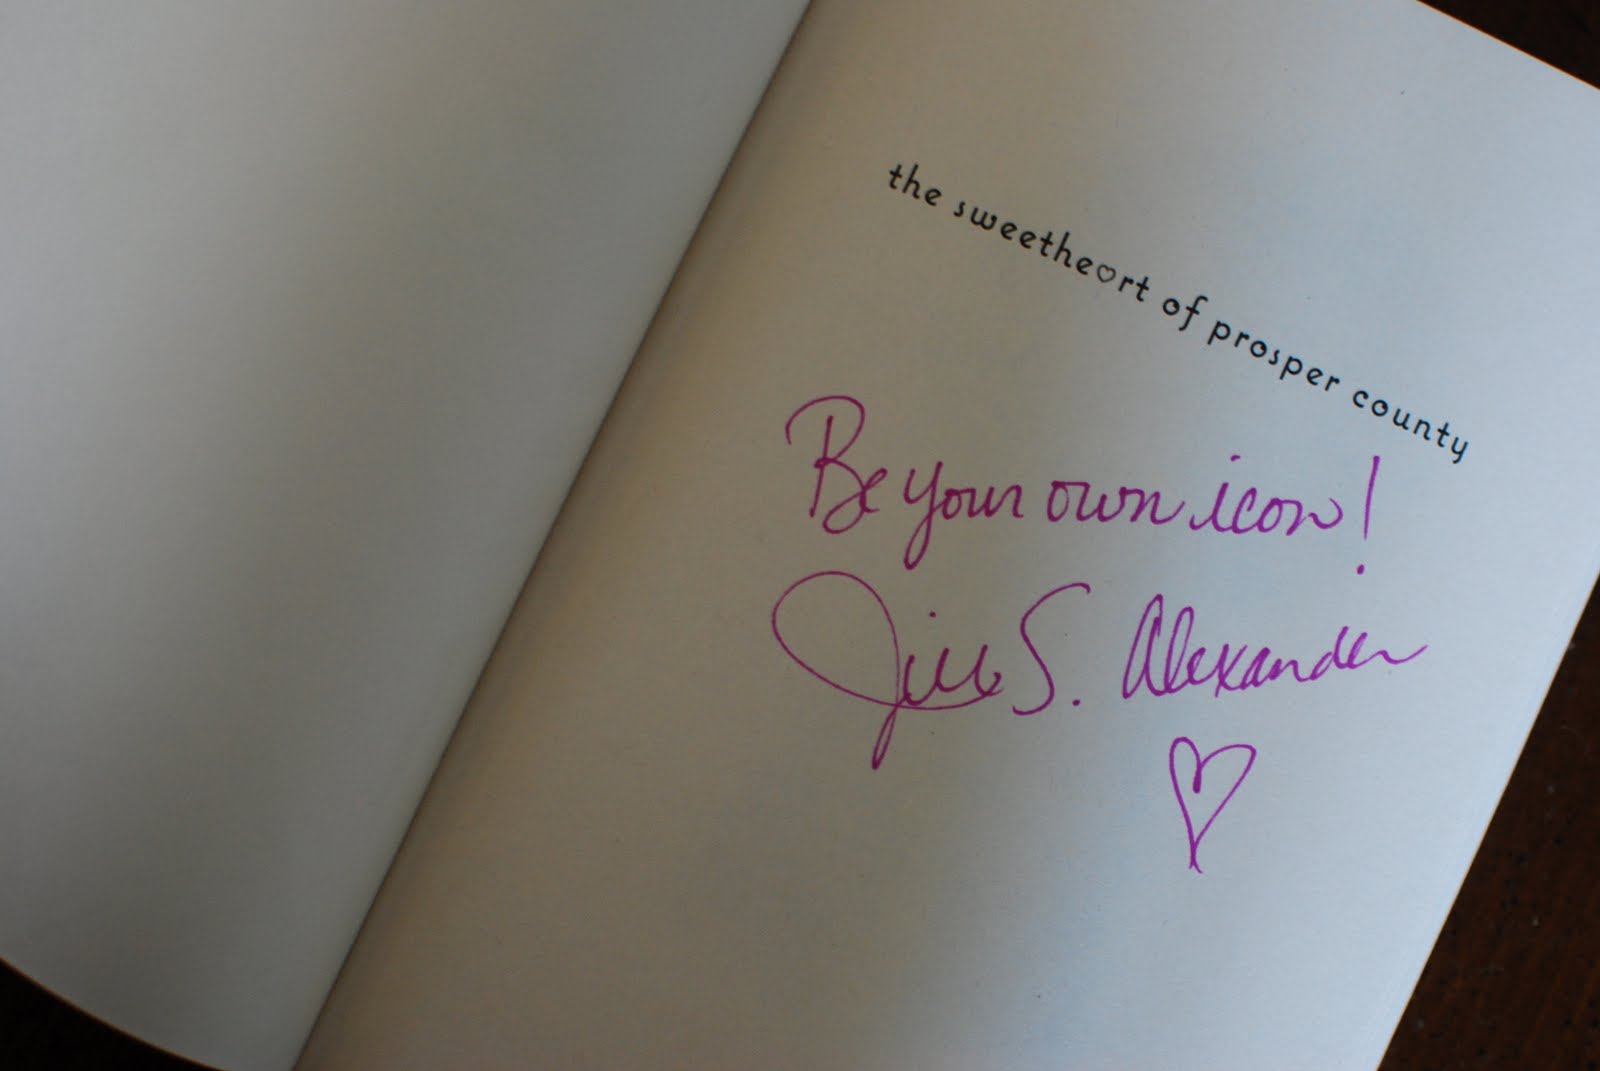 the sweethe♡rt of prosper county
Be your own icon!
Jill S. Alexander
♡